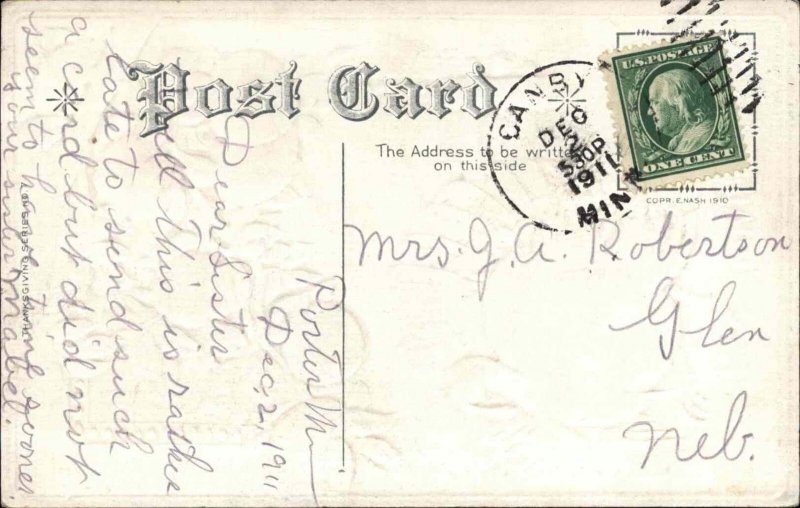 Post Card
The Address to be written
on this side
CANBY
DEC
2
530P
1911
MINN
U.S. POSTAGE
ONE CENT
COPR. E. NASH 1910
THANKSGIVING SERIES
Mrs. J. A. Robertson
Glen
Neb.
Porter Mn
Dec, 2, 1911
Dear Sister
Well this is rather
late to send such
a card but did not
seem to have time sooner
your sister Mabel.